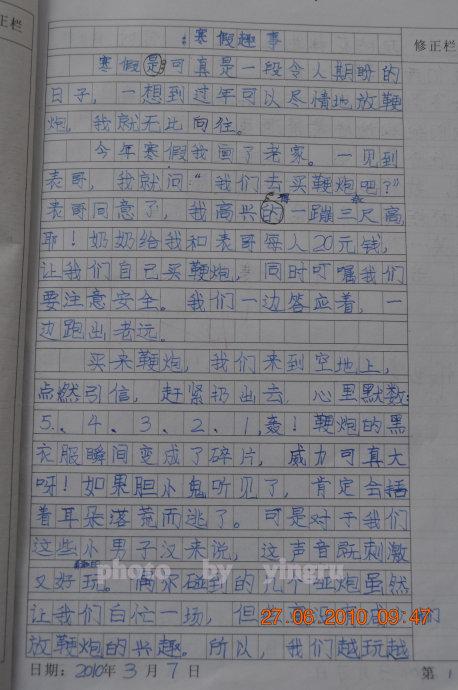 正栏
修正栏
寒假趣事
寒假是可真是一段令人期盼的
日子，一想到过年可以尽情地放鞭
炮，我就无比向往。
今年寒假我回了老家。一见到
表哥，我就问“我们去买鞭炮吧?”
得
表哥同意了，我高兴的一蹦三尺高
耶！奶奶给我和表哥每人20元钱，
让我们自己买鞭炮，同时叮嘱我们
要注意安全。我们一边答应着，一
边跑出老远。
买来鞭炮，我们来到空地上，
点然引信，赶紧扔出去，心里默数:
5、4、3、2、1,轰！鞭炮的黑
衣服瞬间变成了碎片，威力可真大
呀！如果胆小鬼听见了，肯定会捂
着耳朵落荒而逃了。可是对于我们
这些小男子汉来说，这声音既刺激
又好玩。偶尔碰到的几个哑炮虽然
photo by yingru
让我们白忙一场，但
们
27.06.2010 09:47
放鞭炮的兴趣。所以，我们越玩越
日期：2010年3月7日
第1